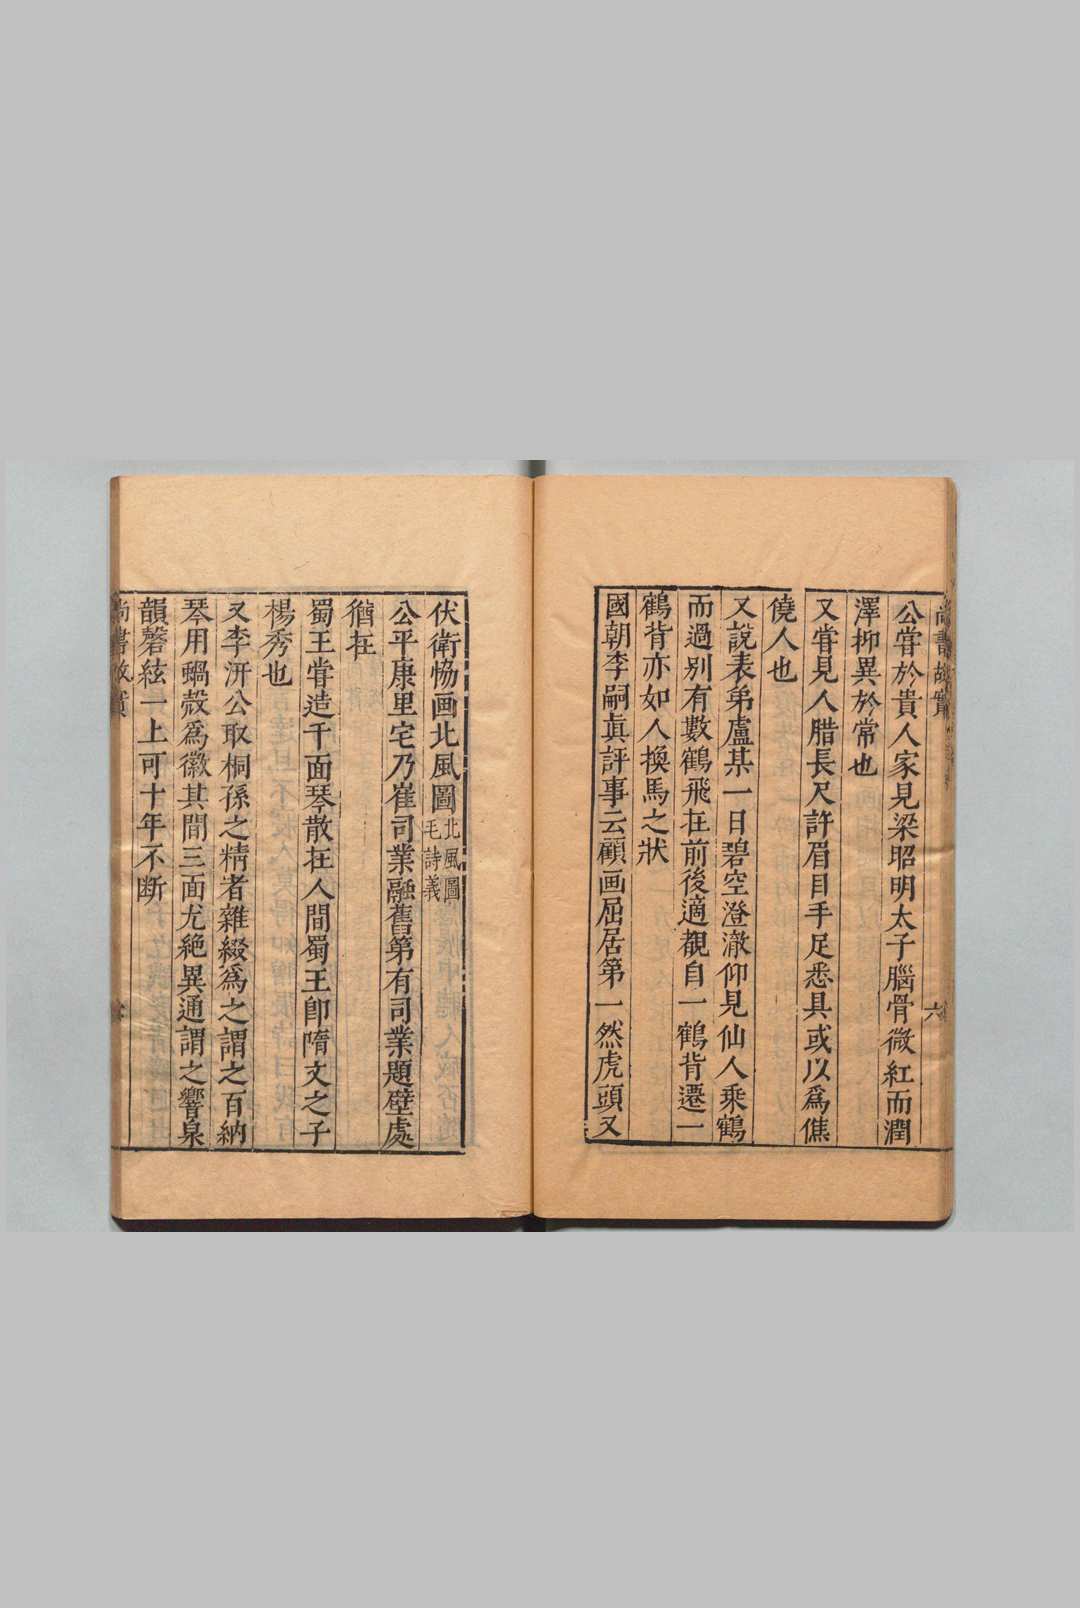 尚書故實
六
公甞於貴人家見梁昭明太子腦骨微紅而潤
澤抑異於常也
又甞見人腊長尺許眉目手足悉具或以爲僬
僥人也
又說表弟盧某一日碧空澄澈仰見仙人乘鶴
而過别有數鶴飛在前後適覩自一鶴背遷一
鶴背亦如人換馬之狀
國朝李嗣眞評事云顧画屈居第一然虎頭又
伏衛恊画北風圖北風圖毛詩義
公平康里宅乃崔司業融舊第有司業題壁處
猶在
蜀王甞造千面琴散在人間蜀王卽隋文之子
楊秀也
又李汧公取桐孫之精者雜綴爲之謂之百衲
琴用蝸殻爲徽其間三面尤絶異通謂之響泉
韻磬絃一上可十年不断
尚書故實